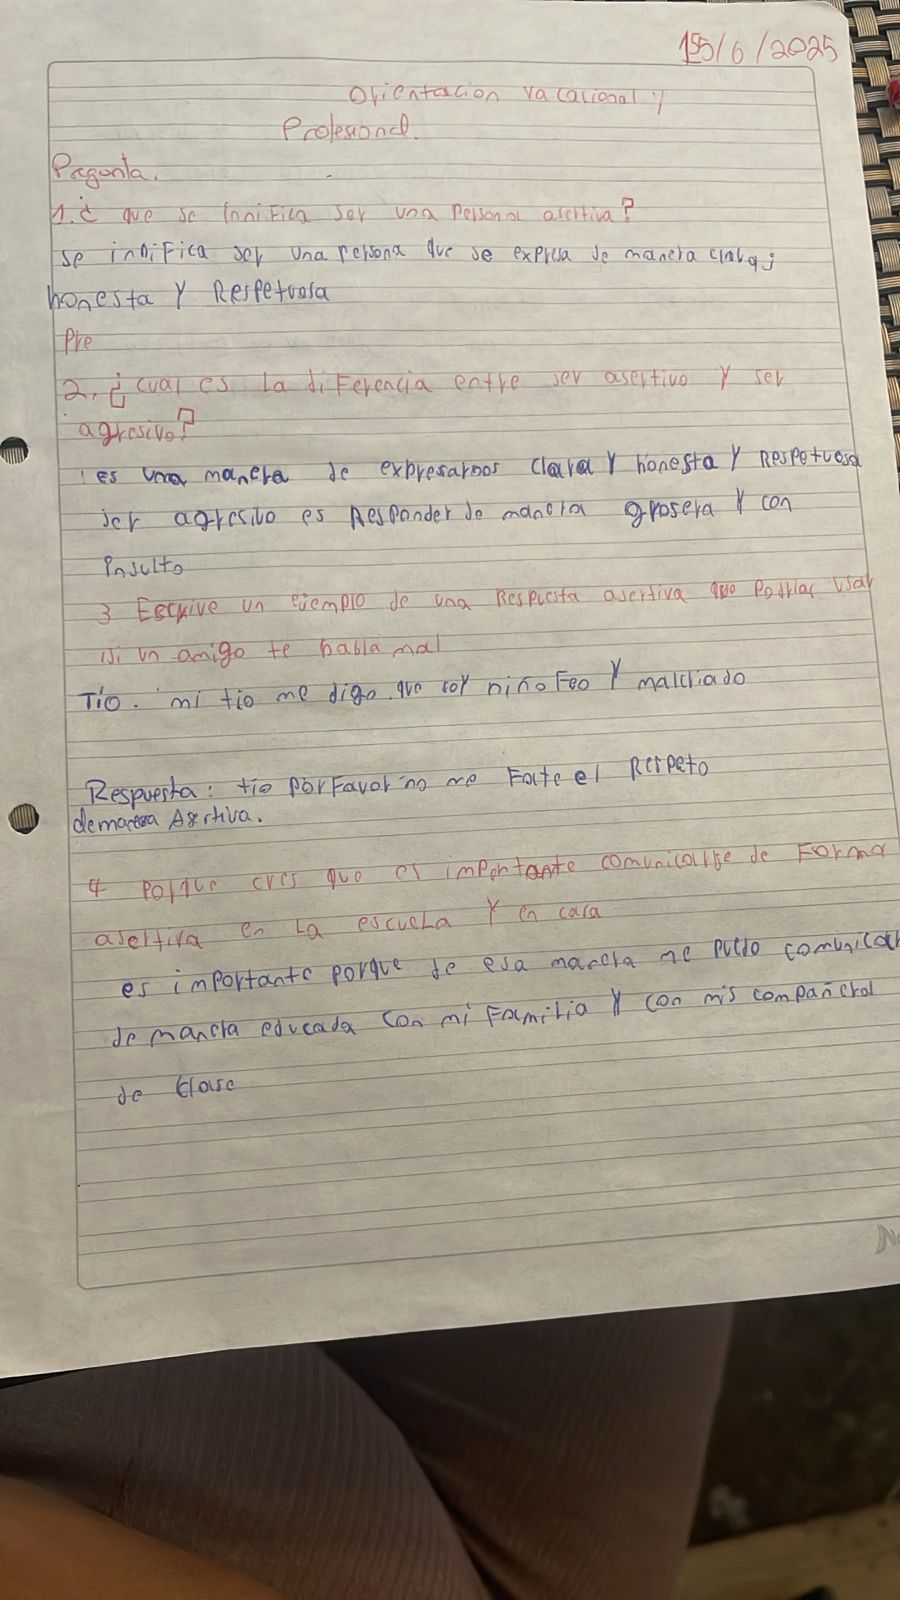 155/6/2025
Orientacion vacacional y
Profesional.
Pregunta.
1. ¿ que se innifica ser una persona asertiva?
se innifica ser una persona que se expresa de manera clara;
honesta y Respetuosa
Pre
2. ¿ cual es La diferencia entre ser asertivo y ser
agresivo?
: es una manera de expresarnos clara y honesta y Respetuosa
ser agresivo es Responder de manera grosera y con
insulto
3 Escrive un ejemplo de una Respuesta asertiva que Podrias usar
si un amigo te habla mal
Tío. mi tio me digo que soy niño Feo y malcriado
Respuesta: tio porFavor no me Farte el Respeto
de Asertiva.
4 Porque cres que es importante comunicarse de Forma
asertiva en La escueLa y en casa
es importante porque de esa manera me puedo comunicar
de manera educada con mi Familia y con mis compañeros
de Clase